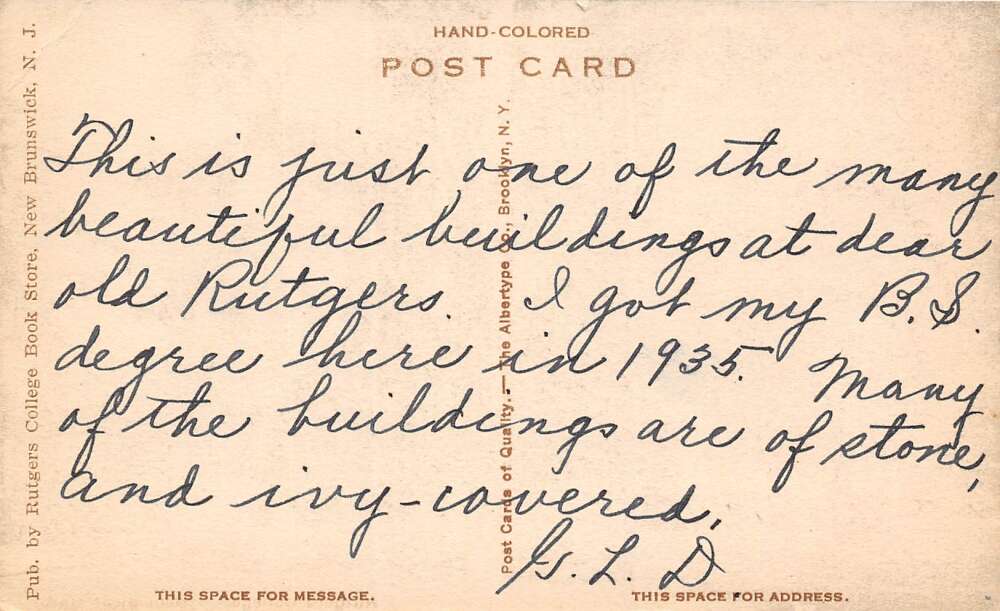 HAND-COLORED
POST CARD
This is just one of the many
beautiful buildings at dear
old Rutgers. I got my B.S.
degree here in 1935. Many
of the buildings are of stone,
and ivy-covered.
G. L. D
THIS SPACE FOR MESSAGE.
THIS SPACE FOR ADDRESS.
Pub. by Rutgers College Book Store, New Brunswick, N. J.
Post Cards of Quality.—The Albertype Co., Brooklyn, N. Y.